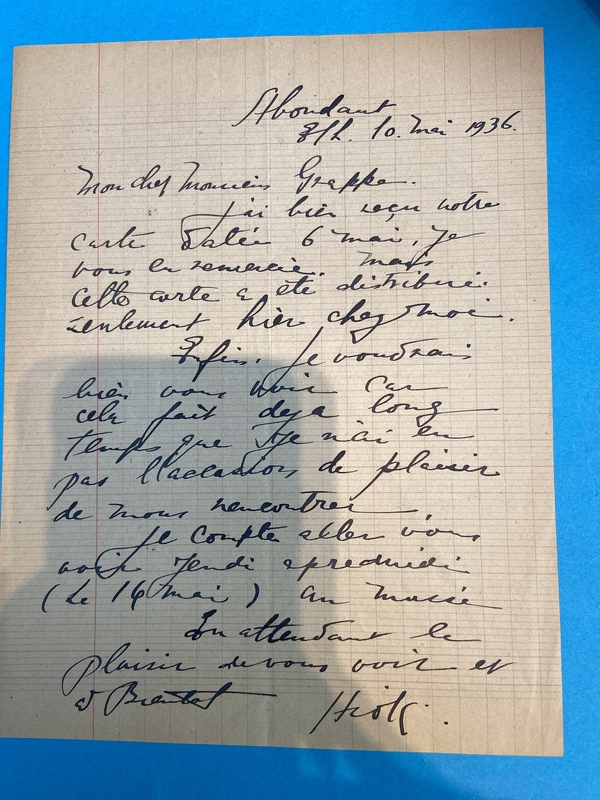 Abondant
E/L. 10. mai 1936.
mon cher monsieur Grappe.
j'ai bien reçu votre
carte datée 6 mai, je
vous en remercie. mais
cette carte a été distribué
seulement hier chez moi.
Enfin. Je voudrais
bien vous voir car
cela fait deja long
temps que je n'ai eu
pas l'accasion de plaisir
de nous rencontrer
Je compte aller vous
voir jendi apresmidi
(Le 14 mai) au musée
En attendant le
plaisir de vous voir et
a Bientot Hiok.